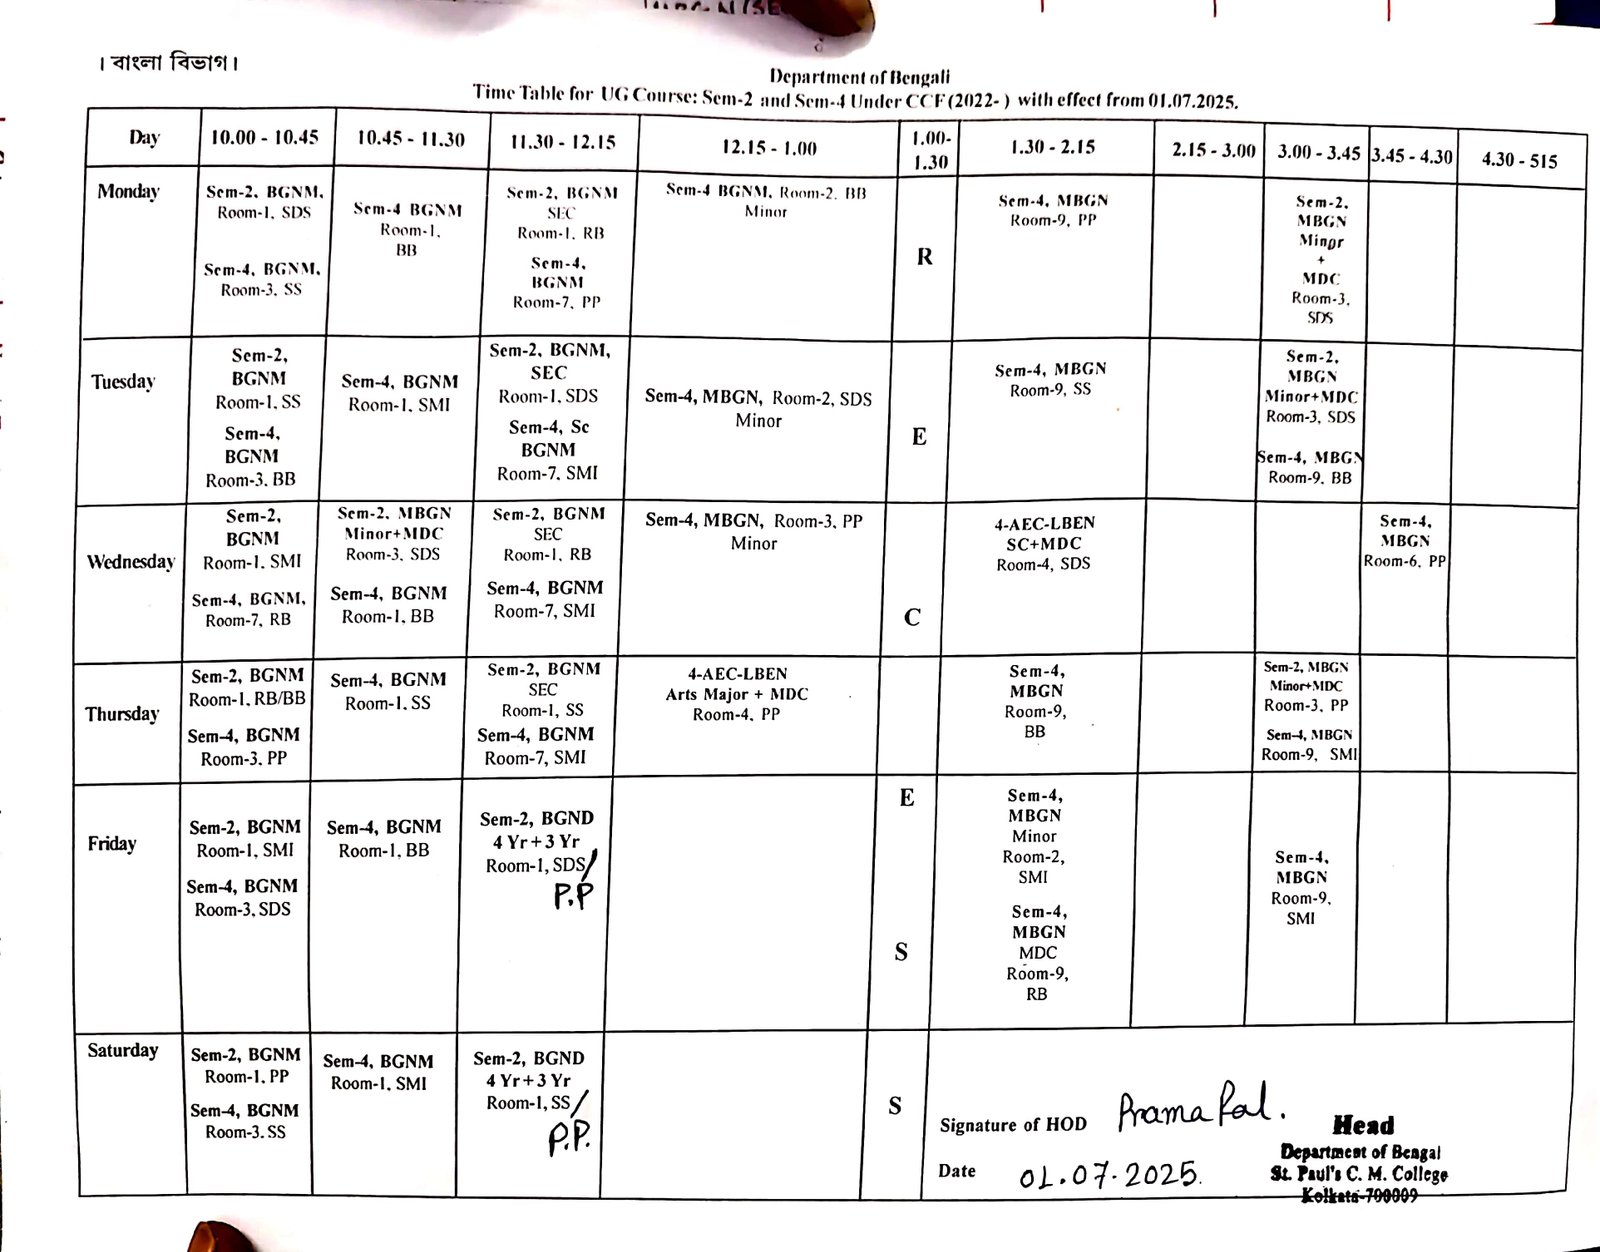 । বাংলা বিভাগ।
Department of Bengali
Time Table for UG Course: Sem-2 and Sem-4 Under CCF (2022- ) with effect from 01.07.2025.
Day
10.00 - 10.45
10.45 - 11.30
11.30 - 12.15
12.15 - 1.00
1.00-
1.30
1.30 - 2.15
2.15 - 3.00
3.00 - 3.45
3.45 - 4.30
4.30 - 515
Monday
Sem-2, BGNM,
Room-1, SDS
Sem-4, BGNM,
Room-3. SS
Sem-4 BGNM
Room-1.
BB
Sem-2, BGNM
SEC
Room-1, RB
Sem-4,
BGNM
Room-7, PP
Sem-4 BGNM, Room-2. BB
Minor
R
Sem-4, MBGN
Room-9, PP
Sem-2,
MBGN
Minor
+
MDC
Room-3,
SDS
Tuesday
Sem-2,
BGNM
Room-1, SS
Sem-4,
BGNM
Room-3. BB
Sem-4, BGNM
Room-1, SMI
Sem-2, BGNM,
SEC
Room-1, SDS
Sem-4, Sc
BGNM
Room-7, SMI
Sem-4, MBGN, Room-2, SDS
Minor
E
Sem-4, MBGN
Room-9, SS
Sem-2,
MBGN
Minor+MDC
Room-3, SDS
Sem-4, MBGN
Room-9, BB
Wednesday
Sem-2,
BGNM
Room-1. SMI
Sem-4, BGNM,
Room-7, RB
Sem-2. MBGN
Minor+MDC
Room-3. SDS
Sem-4, BGNM
Room-1, BB
Sem-2, BGNM
SEC
Room-1, RB
Sem-4, BGNM
Room-7, SMI
Sem-4, MBGN, Room-3, PP
Minor
C
4-AEC-LBEN
SC+MDC
Room-4, SDS
Sem-4,
MBGN
Room-6, PP
Thursday
Sem-2, BGNM
Room-1, RB/BB
Sem-4, BGNM
Room-3. PP
Sem-4, BGNM
Room-1. SS
Sem-2, BGNM
SEC
Room-1, SS
Sem-4, BGNM
Room-7, SMI
4-AEC-LBEN
Arts Major + MDC
Room-4, PP
Sem-4,
MBGN
Room-9,
BB
Sem-2, MBGN
Minor+MDC
Room-3, PP
Sem-4, MBGN
Room-9, SMI
Friday
Sem-2, BGNM
Room-1, SMI
Sem-4, BGNM
Room-3, SDS
Sem-4, BGNM
Room-1, BB
Sem-2, BGND
4 Yr+3 Yr
Room-1, SDS/
P.P
E
S
Sem-4,
MBGN
Minor
Room-2,
SMI
Sem-4,
MBGN
MDC
Room-9,
RB
Sem-4,
MBGN
Room-9,
SMI
Saturday
Sem-2, BGNM
Room-1, PP
Sem-4, BGNM
Room-3. SS
Sem-4, BGNM
Room-1, SMI
Sem-2, BGND
4 Yr+3 Yr
Room-1, SS/
P.P.
S
Signature of HOD Prama Pal.
Date 01.07.2025.
Head
Department of Bengal
St. Paul's C. M. College
Kolkata-700009